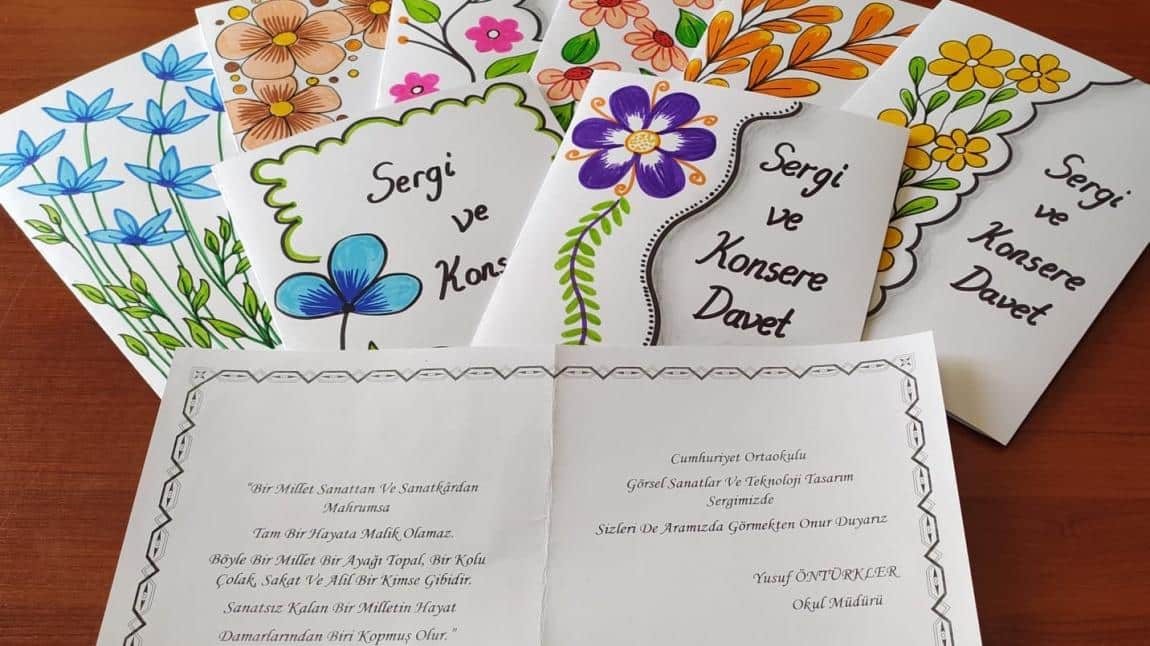 Sergi
ve
Kons
Sergi
ve
Konsere
Davet
Sergi
ve
Konsere
Davet
"Bir Millet Sanattan Ve Sanatkârdan
Mahrumsa
Tam Bir Hayata Malik Olamaz.
Böyle Bir Millet Bir Ayağı Topal, Bir Kolu
Çolak, Sakat Ve Alil Bir Kimse Gibidir.
Sanatsız Kalan Bir Milletin Hayat
Damarlarından Biri Kopmuş Olur."
Cumhuriyet Ortaokulu
Görsel Sanatlar Ve Teknoloji Tasarım
Sergimizde
Sizleri De Aramızda Görmekten Onur Duyarız
Yusuf ÖNTÜRKLER
Okul Müdürü